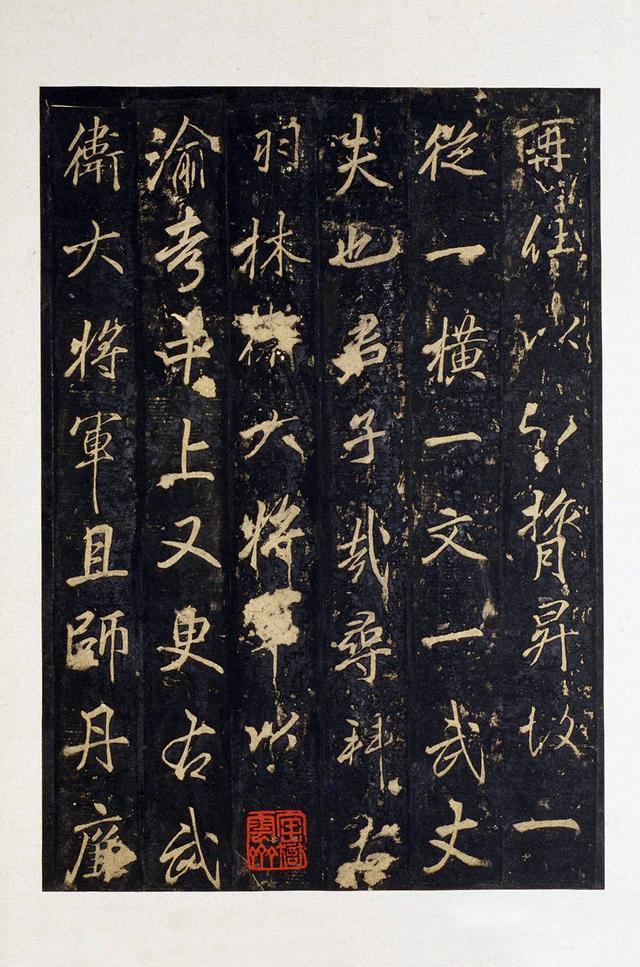 再仕以昇故一
從一橫一文一武丈
夫也君子哉尋拜右
羽林衛大將軍以
渝考中上又更右武
衛大將軍且師丹廉